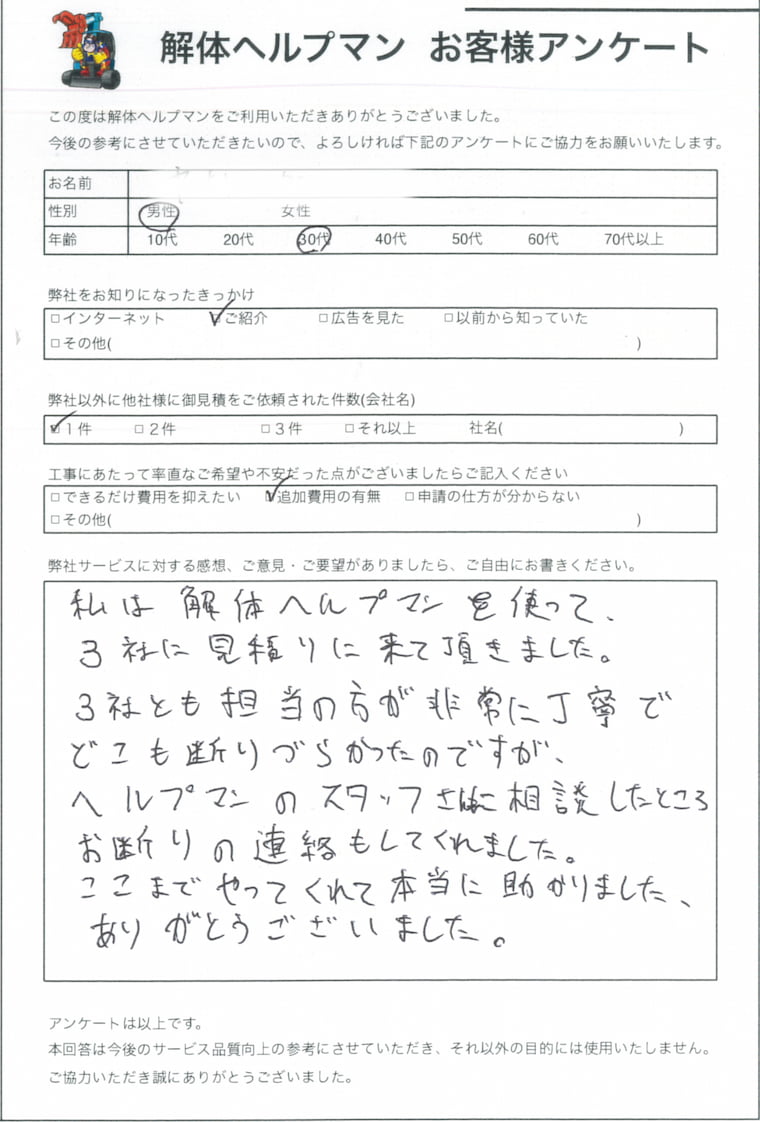 解体ヘルプマン お客様アンケート
この度は解体ヘルプマンをご利用いただきありがとうございました。
今後の参考にさせていただきたいので、よろしければ下記のアンケートにご協力をお願いいたします。
お名前
性別 男性 女性
年齢 10代 20代 30代 40代 50代 60代 70代以上
弊社をお知りになったきっかけ
□インターネット ☑ご紹介 □広告を見た □以前から知っていた
□その他( )
弊社以外に他社様に御見積をご依頼された件数(会社名)
☑1件 □2件 □3件 □それ以上 社名( )
工事にあたって率直なご希望や不安だった点がございましたらご記入ください
□できるだけ費用を抑えたい ☑追加費用の有無 □申請の仕方が分からない
□その他( )
弊社サービスに対する感想、ご意見・ご要望がありましたら、ご自由にお書きください。
私は解体ヘルプマンを使って、
3社に見積りに来て頂きました。
3社とも担当の方が非常に丁寧で
どこも断りづらかったのですが、
ヘルプマンのスタッフさんに相談したところ
お断りの連絡もしてくれました。
ここまでやってくれて本当に助かりました、
ありがとうございました。
アンケートは以上です。
本回答は今後のサービス品質向上の参考にさせていただき、それ以外の目的には使用いたしません。
ご協力いただき誠にありがとうございました。